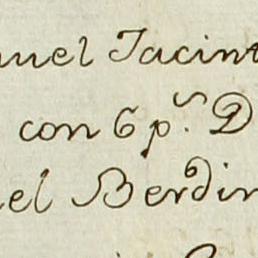 nuel Jacint
con 6 p.s D
el Berdin